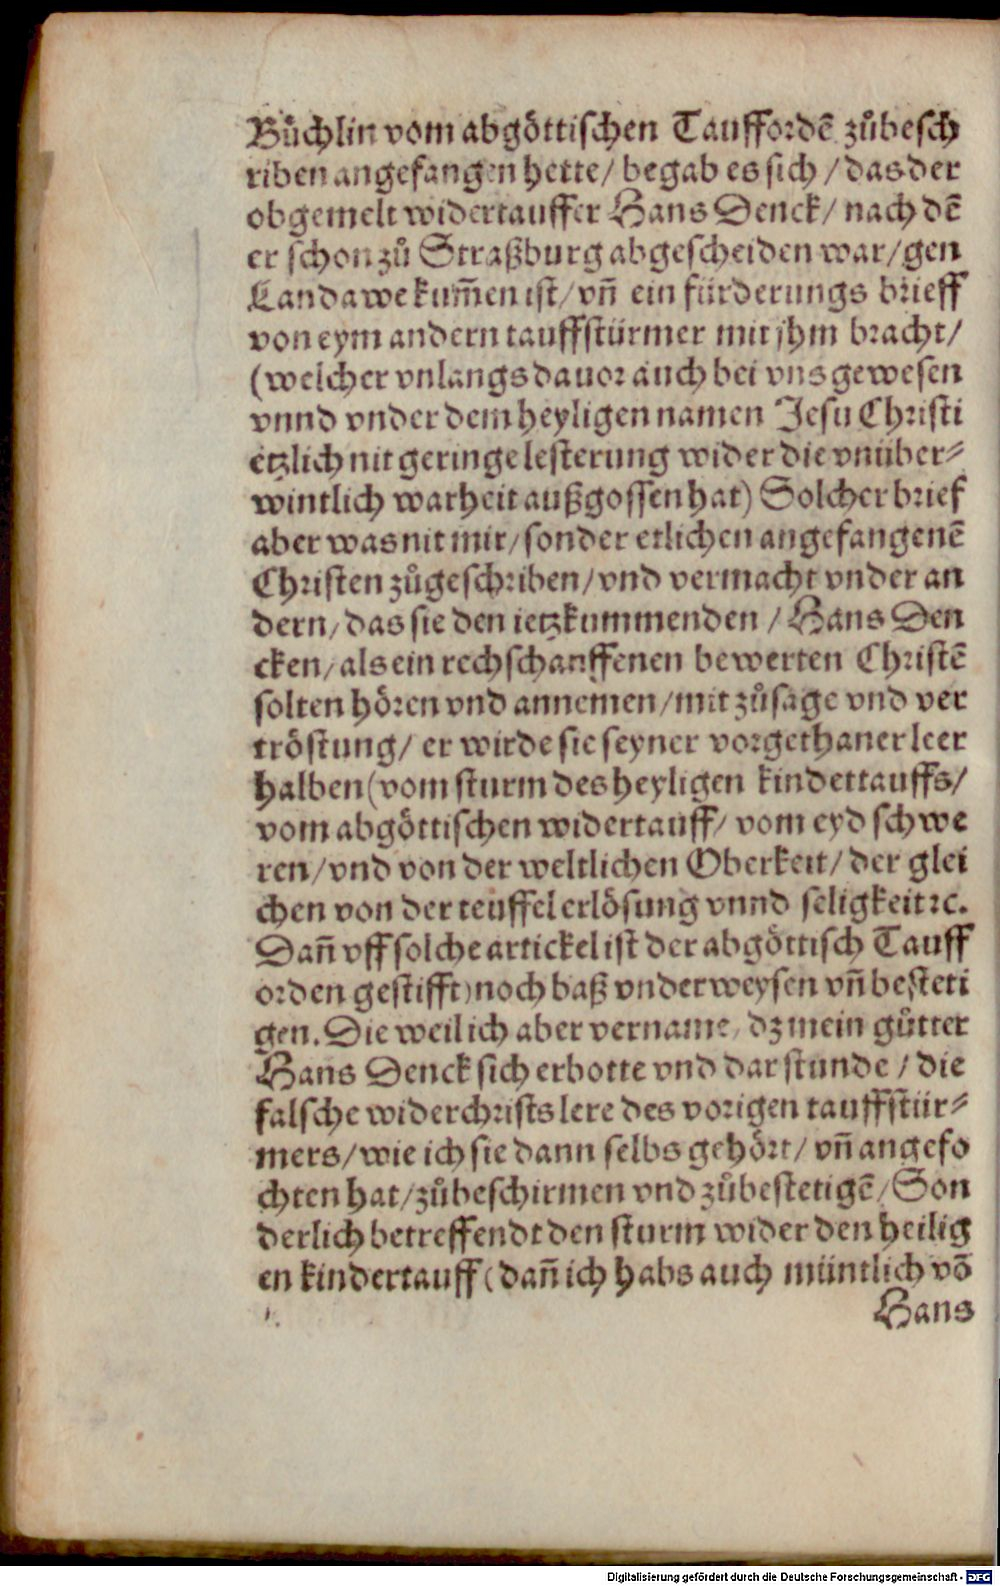 Bůchlin vom abgöttischen Tauffordē zůbesch
riben angefangen hette/ begab es sich / das der
obgemelt widertauffer Hans Denck/ nach dē
er schon zů Straßburg abgescheiden war/gen
Landawe kum̄en ist/ vn̄ ein fürderungs brieff
von eym andern tauffstürmer mit jhm bracht/
(welcher vnlangs dauor auch bei vns gewesen
vnnd vnder dem heyligen namen Jesu Christi
etzlich nit geringe lesterung wider die vnüber⸗
wintlich warheit außgossen hat) Solcher brief
aber was nit mir/ sonder etlichen angefangenē
Christen zůgeschriben/ vnd vermacht vnder an
dern/ das sie den ietzkummenden / Hans Den
cken/ als ein rechschanffenen bewerten Christē
solten hören vnd annemen/ mit zůsage vnd ver
tröstung/ er wirde sie seyner vorgethaner leer
halben (vom sturm des heyligen kindettauffs/
vom abgöttischen widertauff/ vom eyd schwe
ren/ vnd von der weltlichen Oberkeit/ der glei
chen von der teuffel erlösung vnnd seligkeit ꝛc.
Dan̄ vff solche artickel ist der abgöttisch Tauff
orden gestifft) noch baß vnderweysen vn̄ besteti
gen. Die weil ich aber vername, dz mein gůtter
Hans Denck sich erbotte vnd dar stunde / die
falsche widerchrists lere des vorigen tauffstür⸗
mers/ wie ich sie dann selbs gehört/ vn̄ angefo
chten hat/ zůbeschirmen vnd zůbestetigē/ Son
derlich betreffendt den sturm wider den heilig
en kindertauff (dan̄ ich habs auch müntlich võ
Hans
Digitalisierung gefördert durch die Deutsche Forschungsgemeinschaft - DFG